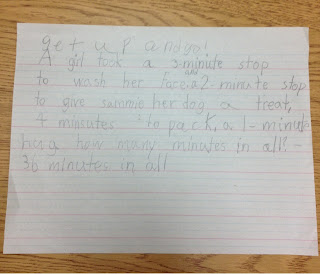 get up and go!
A girl took a 3-minute stop
to wash her face. and a 2-minute stop
to give sammie her dog a treat,
4 minsutes to pack, a 1-minute
hug how many minutes in all? -
36 minutes in all